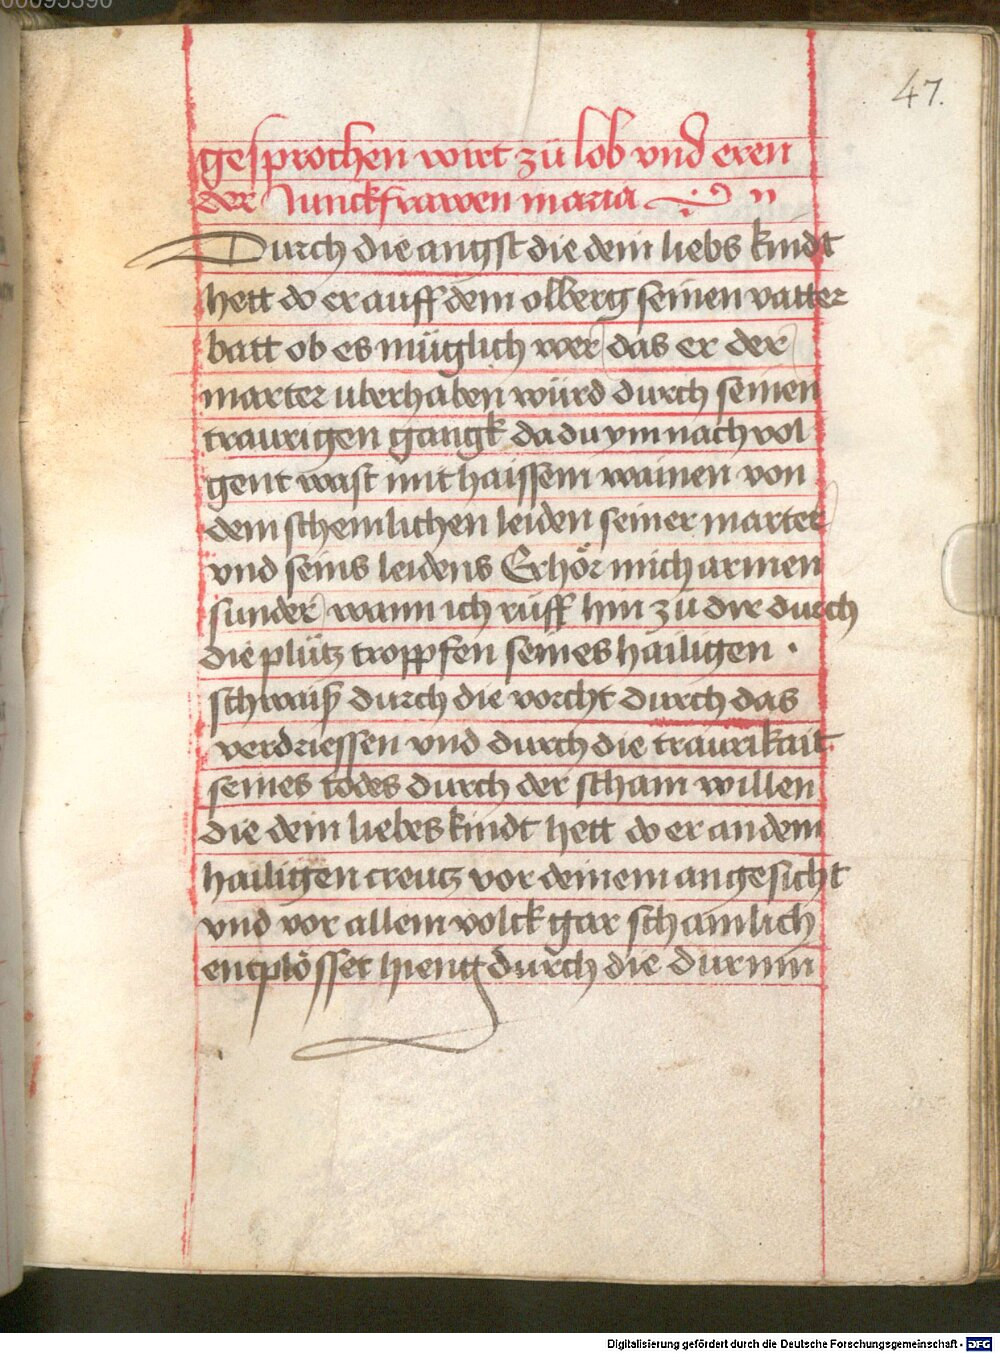 00095390
47.
gesprochen wirt zů lob vnd eren
der Junckfrawen maria
Durch die angst die dein liebs kindt
hett do er auff dem olberg seinen vatter
batt ob es müglich wer das er der
marter uberhaben würd durch seinen
traurigen gangk da du ym nach vol
gent wast mit haissem wainen von
dem scheinlichen leiden seiner marter
vnd seins leidens Erhör mich armen
sunder wann ich rüff hin zů dir durch
die plůtz tropffen seines hailigen ·
schwaiß durch die vorcht durch das
verdriessen vnd durch die traurikait
seines todes durch der scham willen
die dein liebes kindt hett do er an dem
hailigen creutz vor deinem angesicht
vnd vor allem volck gar schamlich
entplösset hieng durch die durnin
Digitalisierung gefördert durch die Deutsche Forschungsgemeinschaft - DFG